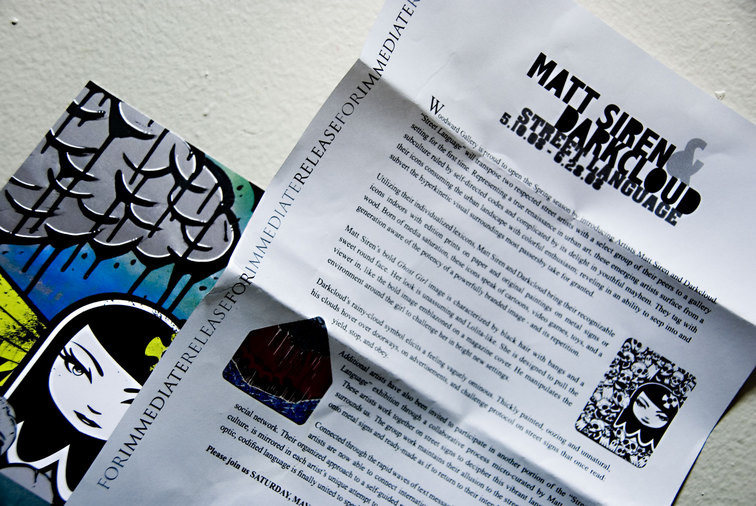 FORIMMEDIATERELEASEFORIMMEDIATERELEASEFORIMMEDIATER
MATT SIREN &
DARKCLOUD
STREET LANGUAGE
5.10.08 - 6.28.08
Woodward Gallery is proud to open the Spring season by introducing Artists Matt Siren and Darkcloud.
"Street Language" will transpose two respected street artists with a select group of their peers to a gallery
setting for the first time. Representing a true renaissance in urban art, these emerging artists surface from a
subculture ruled by self-directed codes and complicated by its delight in youthful mayhem. They tag with
their icons consuming the urban landscape with colorful enthusiasm, reveling in an ability to seep into and
subvert the hyperkinetic visual surroundings most passersby take for granted.
Utilizing their individualized lexicons, Matt Siren and Darkcloud bring their recognizable
icons indoors with edition prints on paper and original paintings on metal signs or
wood. Born of media saturation, these icons speak of cartoons, video games, toys, and a
generation aware of the potency of a powerfully branded image - and its repetition.
Matt Siren's bold Ghost Girl image is characterized by black hair with bangs and a
sweet round face. Her look is unassuming and Lolita-like. She is designed to pull the
viewer in, like the bold image emblazoned on a magazine cover. He manipulates the
environment around the girl to challenge her in bright new settings.
Darkcloud's rainy-cloud symbol elicits a feeling vaguely ominous. Thickly painted, oozing and unnatural,
his clouds hover over doorways, on advertisements, and challenge protocol on street signs that once read,
yield, stop, and obey.
Additional artists have also been invited to participate in another portion of the "Street
Language" exhibition through a collaborative process micro-curated by Matt
These artists work together on street signs to decipher this vibrant lan
surrounds us. The group work maintains their allusion to the street
onto metal signs and ready-made as if to return to their inten
Connected through the rapid waves of text message
artists are now able to connect internation
social network. Their organized approach to a self-guided
culture, is mirrored in each artist's unique attempt
optic, codified language is finally united to spe
Please join us SATURDAY, MAY